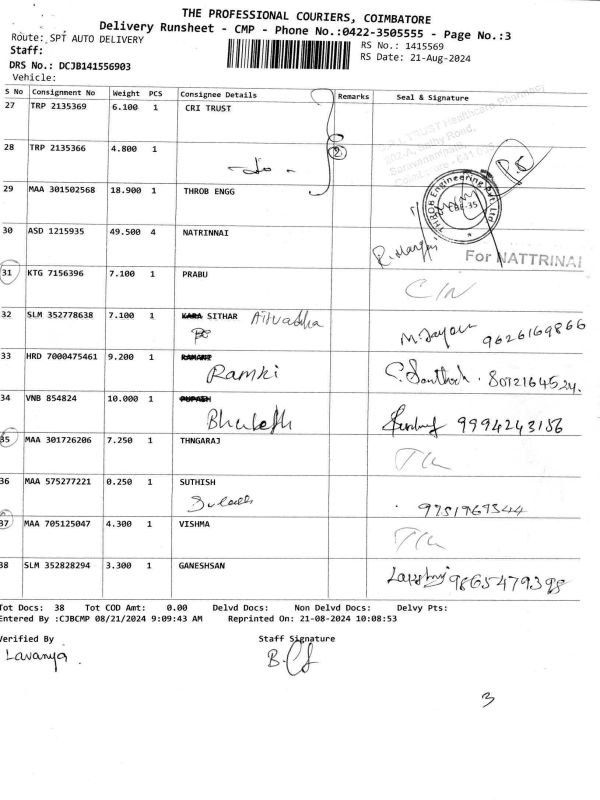 THE PROFESSIONAL COURIERS, COIMBATORE
Delivery Runsheet - CMP - Phone No.:0422-3505555 - Page No.:3
Route: SPT AUTO DELIVERY
RS No.: 1415569
Staff:
RS Date: 21-Aug-2024
DRS No.: DCJB141556903
Vehicle:
S No Consignment No Weight PCS Consignee Details Remarks Seal & Signature
27 TRP 2135369 6.100 1 CRI TRUST
28 TRP 2135366 4.800 1 - do -
29 MAA 301502568 18.900 1 THROB ENGG
THROB Engineering Pvt Ltd
CBE-35
30 ASD 1215935 49.500 4 NATRINNAI
For NATTRINAI
31 KTG 7156396 7.100 1 PRABU
32 SLM 352778638 7.100 1 SITHAR
9626169866
33 HRD 7000475461 9.200 1
Ramki
8012164524
34 VNB 854824 10.000 1
9994243156
35 MAA 301726206 7.250 1 THNGARAJ
36 MAA 575277221 0.250 1 SUTHISH
37 MAA 705125047 4.300 1 VISHMA
38 SLM 352828294 3.300 1 GANESHSAN
9865479398
Tot Docs: 38 Tot COD Amt: 0.00 Delvd Docs: Non Delvd Docs: Delvy Pts:
Entered By :CJBCMP 08/21/2024 9:09:43 AM Reprinted On: 21-08-2024 10:08:53
Verified By Staff Signature
Lavanya
3